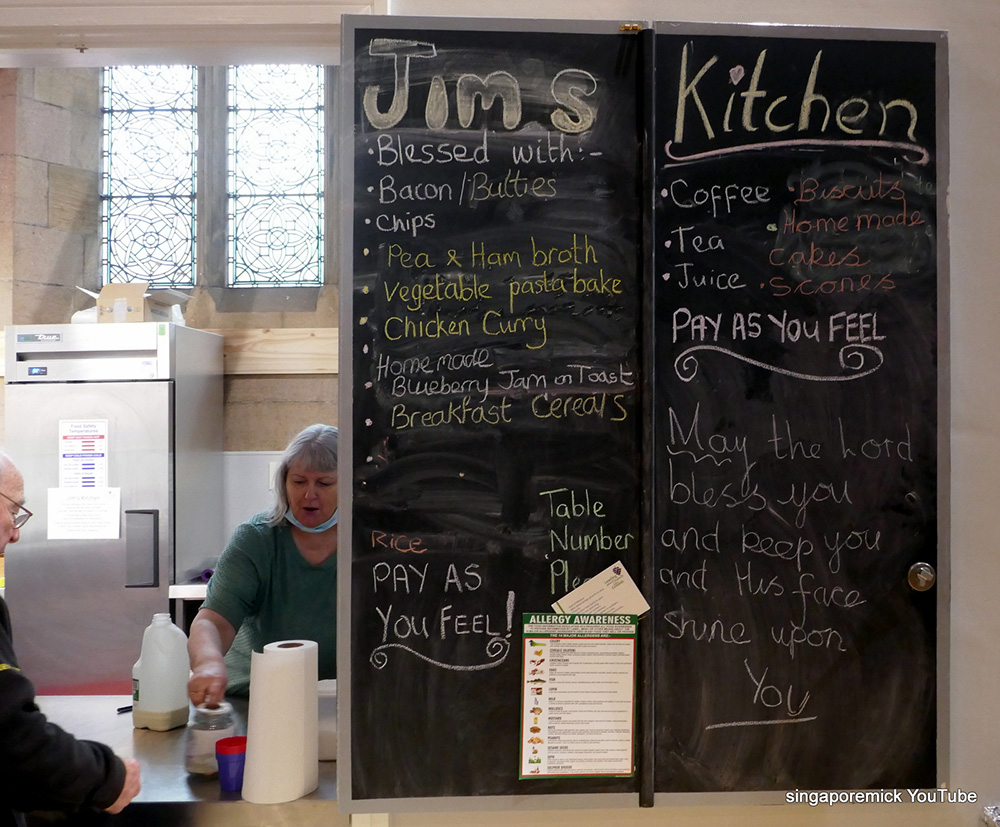 Jim s
•Blessed with:-
•Bacon/Butties
•Chips
Pea & Ham broth
Vegetable pasta bake
Chicken Curry
Homemade
Blueberry Jam on Toast
Breakfast Cereals
Rice
PAY AS
YOU FEEL!
Table
Number
Ple
ALLERGY AWARENESS
Kitchen
•Coffee
•Tea
•Juice
•Biscuits
•Homemade
Cakes
•Scones
PAY AS YOU FEEL
May the Lord
bless you
and keep you
and His face
shine upon
You
True
Food Safety
Temperatures
singaporemick YouTube